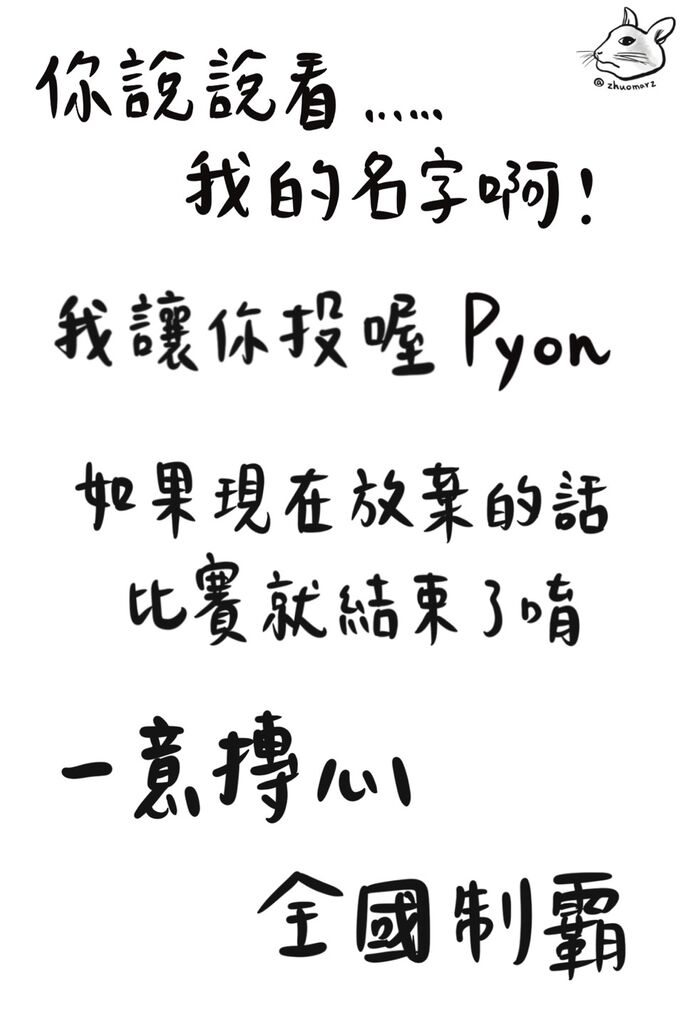 @zhuomarz
你說說看......
我的名字啊!
我讓你投喔 Pyon
如果現在放棄的話
比賽就結束了唷
一意摶心
全國制霸